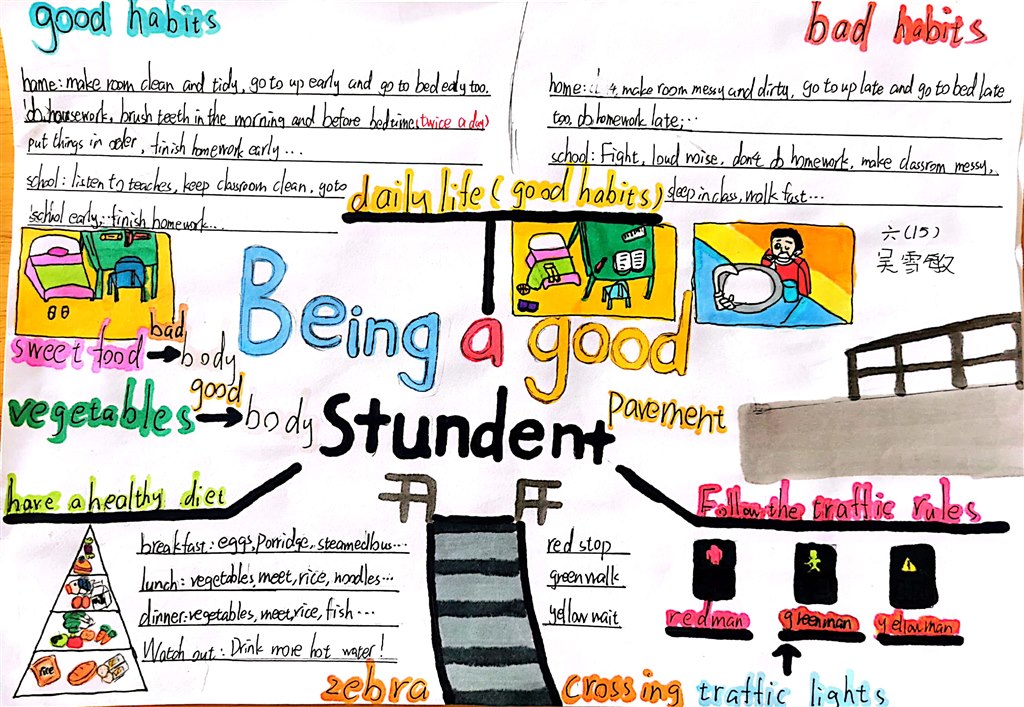 good habits
home: make room clean and tidy, go to up early and go to bed edly too.
do housework, brush teeth in the morning and before bedtime(twice a day)
put things in oder, finish homework early...
school: listen to teaches, keep classroom clean, go to
school early... finish homework...
bad habits
home: make room messy and dirty, go to up late and go to bed late
too, do homework late;...
school: Fight, loud noise, don't do homework, make classrom messy,
sleep in class, walk fast...
daily life (good habits)
六(15)
吴雪敏
Being a good
Stundent
sweet food → bad body
vegetables → good body
pavement
have a healthy diet
breakfast: eggs, Porridge, steamed bus...
lunch: vegetables, meet, rice, noodles...
dinner: vegetables, meet, rice, fish...
Watch out: Drink more hot water!
rice
Follow the traffic rules
red stop
green walk
yellow wait
red man
green man
yellow man
zebra crossing
traffic lights